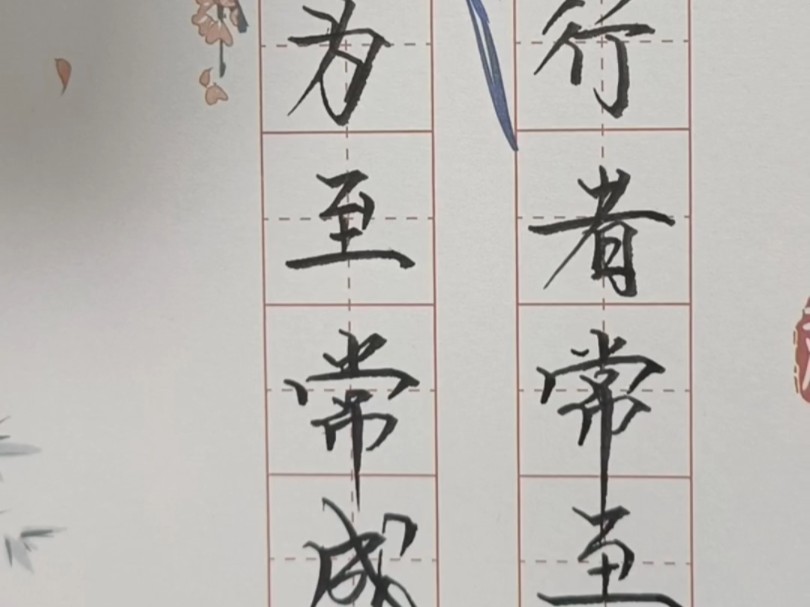 行者常至
为至常成